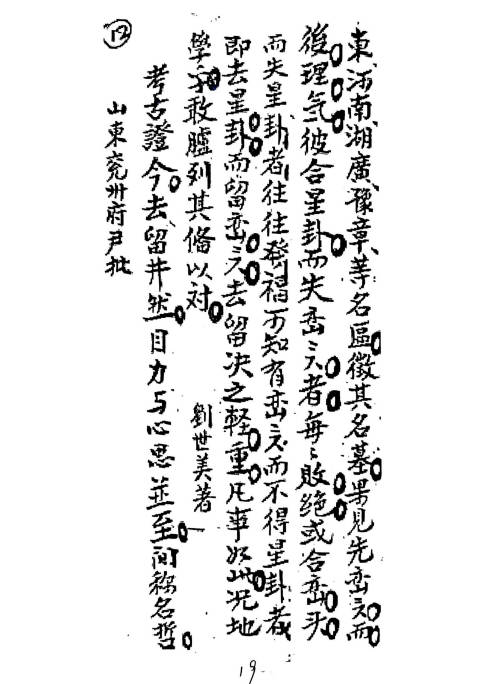 12
東、河南、湖廣、豫章、等名區徵其名墓果見先峦头而
後理気彼合星卦而失峦头者每每敗绝或合峦头
而失星卦者往往發福可知有峦头而不得星卦者
即去星卦而留峦头去留决之軽重凡事如此况地
學乎敢臚列其俻以対
劉世美著
考古證今去留井然目力与心思並至间称名哲
山東兖州府尹批
19